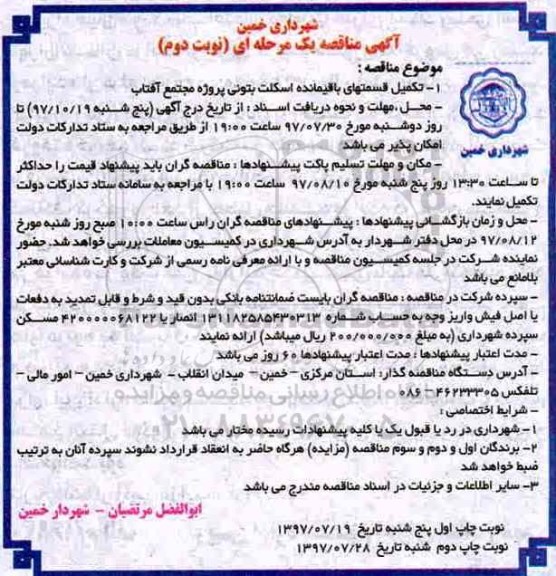 شهرداری خمین
آگهی مناقصه یک مرحله ای (نوبت دوم)
موضوع مناقصه :
۱- تکمیل قسمتهای باقیمانده اسکلت بتونی پروژه مجتمع آفتاب
- محل ،مهلت و نحوه دریافت اسناد : از تاریخ درج آگهی (پنج شنبه ۹۷/۱۰/۱۹) تا
روز دوشنبه مورخ ۹۷/۰۷/۳۰ ساعت ۱۹:۰۰ از طریق مراجعه به ستاد تدارکات دولت
امکان پذیر می باشد
شهرداری خمین
- مکان و مهلت تسلیم پاکت پیشنهادها : مناقصه گران باید پیشنهاد قیمت را حداکثر
تا ساعت ۱۳:۳۰ روز پنج شنبه مورخ ۹۷/۰۸/۱۰ ساعت ۱۹:۰۰ با مراجعه به سامانه ستاد تدارکات دولت
تکمیل نمایند.
- محل و زمان بازگشائی پیشنهادها : پیشنهادهای مناقصه گران راس ساعت ۱۰:۰۰ صبح روز شنبه مورخ
۹۷/۰۸/۱۲ در محل دفتر شهردار به آدرس شهرداری در کمیسیون معاملات بررسی خواهد شد. حضور
نماینده شرکت در جلسه کمیسیون مناقصه و با ارائه معرفی نامه رسمی از شرکت و کارت شناسائی معتبر
بلامانع می باشد
- سپرده شرکت در مناقصه : مناقصه گران بایست ضمانتنامه بانکی بدون قید و شرط و قابل تمدید به دفعات
یا اصل فیش واریز وجه به حساب شماره ۱۳۱۱۸۲۵۸۵۴۳۰۳۱۳ انصار یا ۴۲۰۰۰۰۰۶۸۱۲۲ مسکن
سپرده شهرداری (به مبلغ ۲۰۰/۰۰۰/۰۰۰ ریال میباشد) ارائه نمایند
- مدت اعتبار پیشنهادها : مدت اعتبار پیشنهادها ۶۰ روز می باشد
- آدرس دستگاه مناقصه گذار: استان مرکزی – خمین – میدان انقلاب - شهرداری خمین – امور مالی –
تلفکس ۴۶۲۳۳۳۰۵ – ۰۸۶
- شرایط اختصاصی :
۱- شهرداری در رد یا قبول یک یا کلیه پیشنهادات رسیده مختار می باشد
۲- برندگان اول و دوم و سوم مناقصه (مزایده) هرگاه حاضر به انعقاد قرارداد نشوند سپرده آنان به ترتیب
ضبط خواهد شد
۳- سایر اطلاعات و جزئیات در اسناد مناقصه مندرج می باشد
ابوالفضل مرتضیان – شهردار خمین
نوبت چاپ اول پنج شنبه تاریخ ۱۳۹۷/۰۷/۱۹
نوبت چاپ دوم شنبه تاریخ ۱۳۹۷/۰۷/۲۸